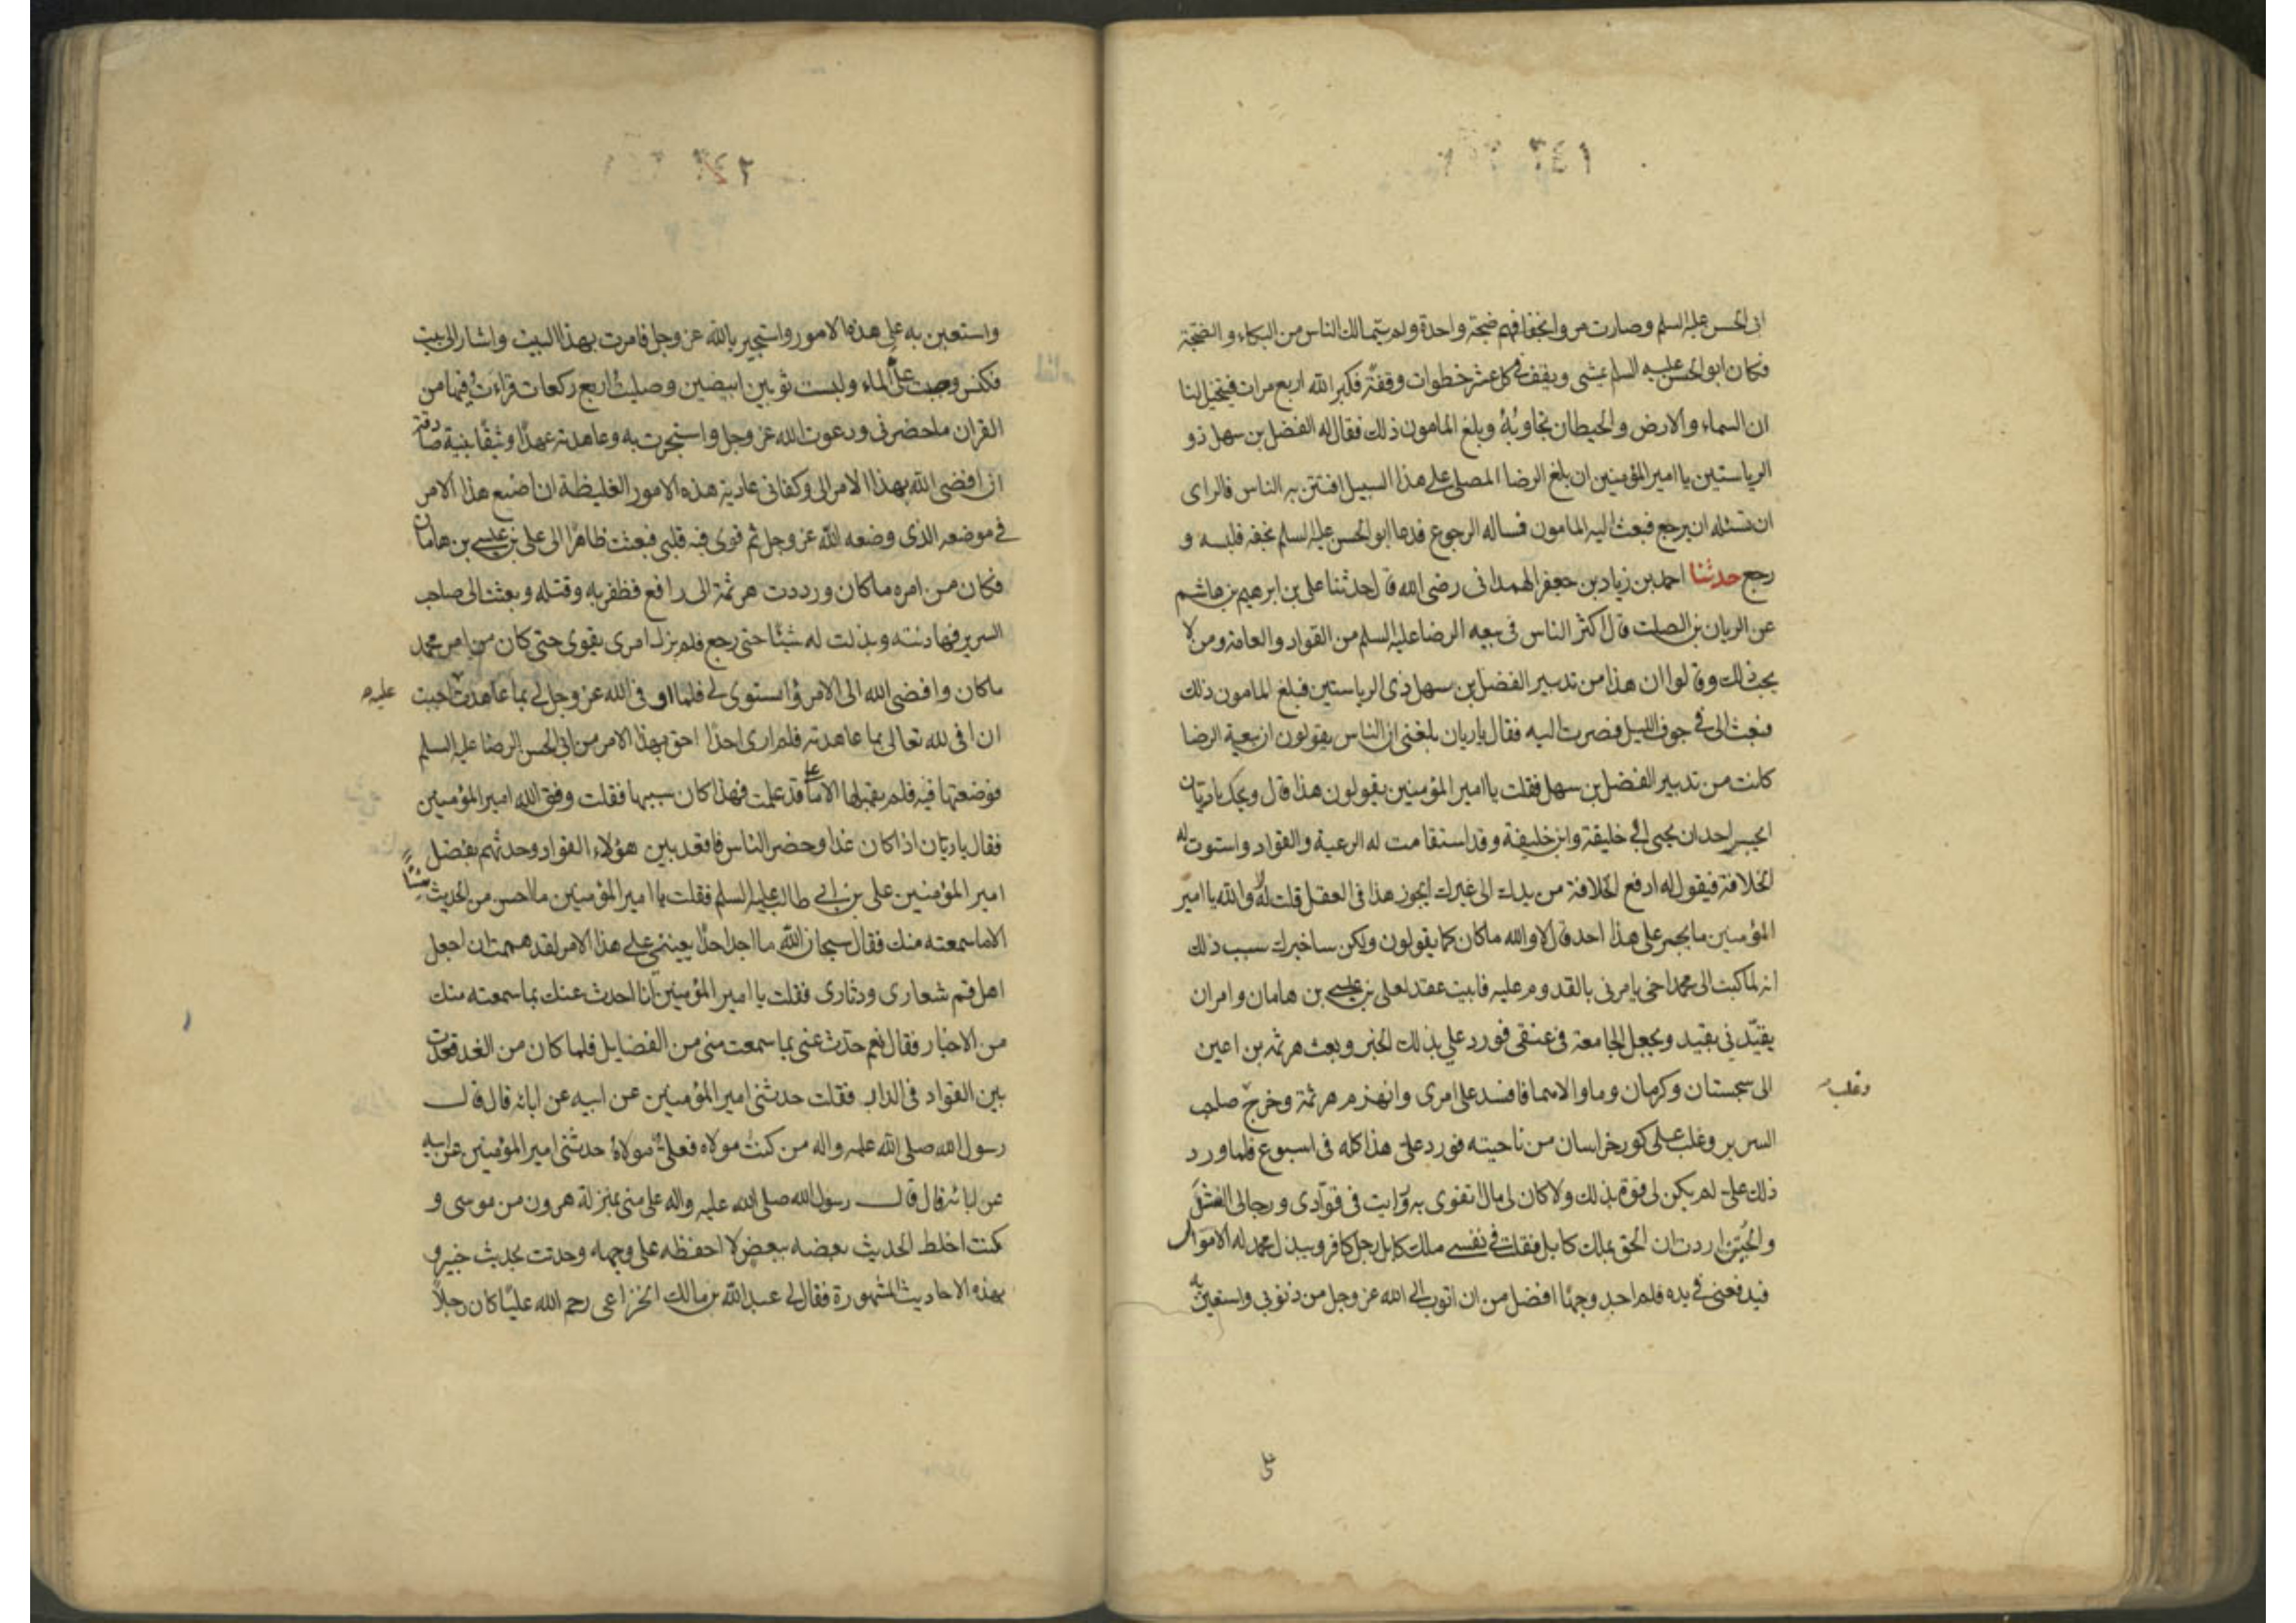 ٣٤١
ابى الحسن عليه السلم وصارت مرو انخفافهم ضجة واحدة ولم يتمالك الناس من البكاء والضجة
فكان ابو الحسن عليه السلم يمشى ويقف فى كل عشر خطوات وقفة فكبر الله اربع مرات فيتخيل لنا
ان السماء والارض والحيطان تجاوبه وبلغ المامون ذلك فقال له الفضل بن سهل ذو
الرياستين يا امير المؤمنين ان بلغ الرضا المصلى على هذا السبيل افتتن به الناس فالراى
ان تسئله ان يرجع فبعث اليه المامون فساله الرجوع فدعا ابو الحسن عليه السلم بخفه فلبسه و
رجع حدثنا احمد بن زياد بن جعفر الهمدانى رضى الله قال حدثنا على بن ابرهيم بن هاشم
عن الريان بن الصلت قال اكثر الناس فى بيعه الرضا عليه السلم من القواد والعامة ومن لا
يحب ذلك وقالوا ان هذا من تدبير الفضل بن سهل ذى الرياستين فبلغ المامون ذلك
فبعث الى فى جوف الليل فصرت اليه فقال يا ريان بلغنى ان الناس يقولون ان بيعة الرضا
كانت من تدبير الفضل بن سهل فقلت يا امير المؤمنين يقولون هذا قال ويحك يا ريان
ايجسر احد ان يجئ الى خليفة وابن خليفة وقد استقامت له الرعية والقواد واستوت له
الخلافة فيقول له ادفع الخلافة من يدك الى غيرك ايجوز هذا فى العقل قلت له لا والله يا امير
المؤمنين ما يجسر على هذا احد قال لا والله ما كان كما يقولون ولكن ساخبرك سبب ذلك
انه لما كتب الى محمد اخى يامرنى بالقدوم عليه فابيت عقد لعلى بن عيسى بن هامان وامر ان
يقيّدنى بقيد ويجعل الجامعة فى عنقى فورد علي بذلك الخبر وبعث هرثمه بن اعين
الى سجستان وكرمان وما والاهما فافسد على امرى وانهزم هرثمة وخرج صاحب
وغلب
السرير وغلب على كور خراسان من ناحيته فورد على هذا كله فى اسبوع فلما ورد
ذلك على لم يكن لى قوة بذلك ولا كان لى مال اتقوى به ورايت فى قوّادى ورجالى الفشل
والجبن اردت ان الحق بملك كابل فقلت فى نفسى ملك كابل رجل كافر ويبذل محمد له الاموال
فيدفعنى فى يده فلم اجد وجهًا افضل من ان اتوب الى الله عز وجل من ذنوبى واستعين به
٣٤٢
واستعين به على هذه الامور واستجير بالله عز وجل فامرت بهذا البيت واشار الى بيت
فكنس وصبت علىّ الماء ولبست ثوبين ابيضين وصليت اربع ركعات قراءت فيها من
القران ما حضرنى ودعوت الله عز وجل واستجرت به وعاهدته عهدًا وثيقًا بنية صادقة
ان افضى الله بهذا الامر الى وكفانى عادية هذه الامور الغليظة ان اضع هذا الامر
فى موضعه الذى وضعه الله عز وجل ثم قوى فيه قلبى فبعثت طاهرًا الى على بن عيسى بن هامان
فكان من امره ما كان ورددت هرثمة الى رافع فظفر به وقتله وبعثت الى صاحب
السرير فهادنته وبذلت له شيئًا حتى رجع فلم يزل امرى يقوى حتى كان من امر محمد
ما كان وافضى الله الى الامر واستوى لى فلما اوفى الله عز وجل لى بما عاهدته احببت
عليه
ان افى لله تعالى بما عاهدته فلم ارى احدًا احق بهذا الامر من ابى الحسن الرضا عليه السلم
فوضعتها فيه فلم يقبلها الا على ما قد علمت فهذا كان سببها فقلت وفق الله امير المؤمنين
فقال يا ريان اذا كان غدا وحضر الناس فاقعد بين هؤلاء القواد وحدثهم بفضل
امير المؤمنين على بن ابى طالب عليه السلم فقلت يا امير المؤمنين ما احسن من الحديث شيئًا
الا ما سمعته منك فقال سبحان الله ما اجد احدًا يعيننى على هذا الامر لقد هممت ان اجعل
اهل قم شعارى ودثارى فقلت يا امير المؤمنين انا احدث عنك بما سمعته منك
من الاخبار فقال نعم حدّث عنى بما سمعت منى من الفضايل فلما كان من الغد قعدت
بين القواد فى الدار فقلت حدثنى امير المؤمنين عن ابيه عن ابائه قال قال
رسول الله صلى الله عليه واله من كنت مولاه فعلى مولاهُ حدثنى امير المؤمنين عن ابيه
عن ابائه قال قال رسول الله صلى الله عليه واله على منى بمنزلة هرون من موسى و
كنت اخلط الحديث بعضه ببعض لا احفظه على وجهه وحدثت بحديث خيبر و
بهذه الاحاديث المشهورة فقال لى عبد الله بن مالك الخزاعى رحم الله عليًا كان رجلاً